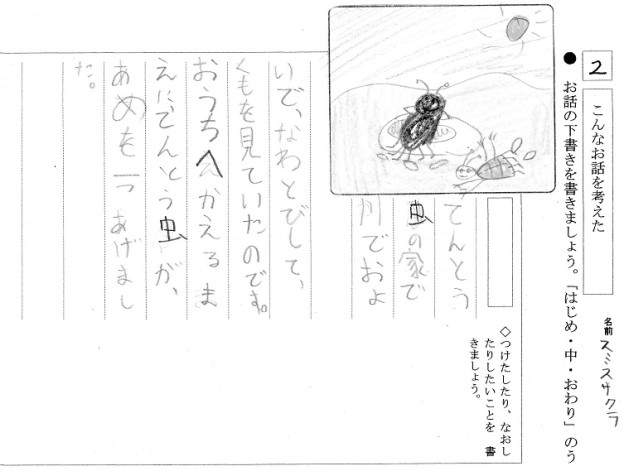 2
こんなお話を考えた
● お話の下書きを書きましょう。「はじめ・中・おわり」のう
名前 スミスサクラ
てんとう
虫の家で
川でおよ
いで、なわとびして、
くもを見ていたのです。
おうちへかえるま
えに、てんとう虫が、
あめを一つあげまし
た。
◇つけたしたり、なおし
たりしたいことを 書
きましょう。